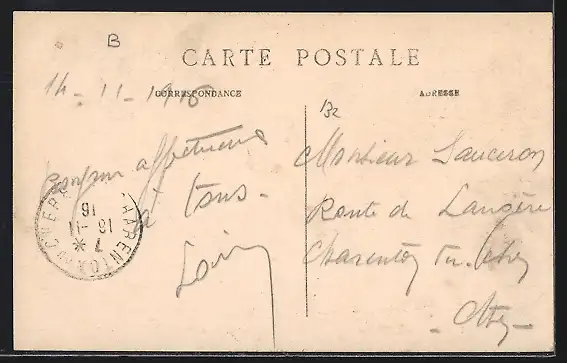 B
CARTE POSTALE
CORRESPONDANCE
ADRESSE
14-11-1916
Bonjour affectueux
à tous -
Monsieur Sauceron
Route de
Charenton du Cher
- Cher -
CHARENTON DU CHER
7 *
16-11
16